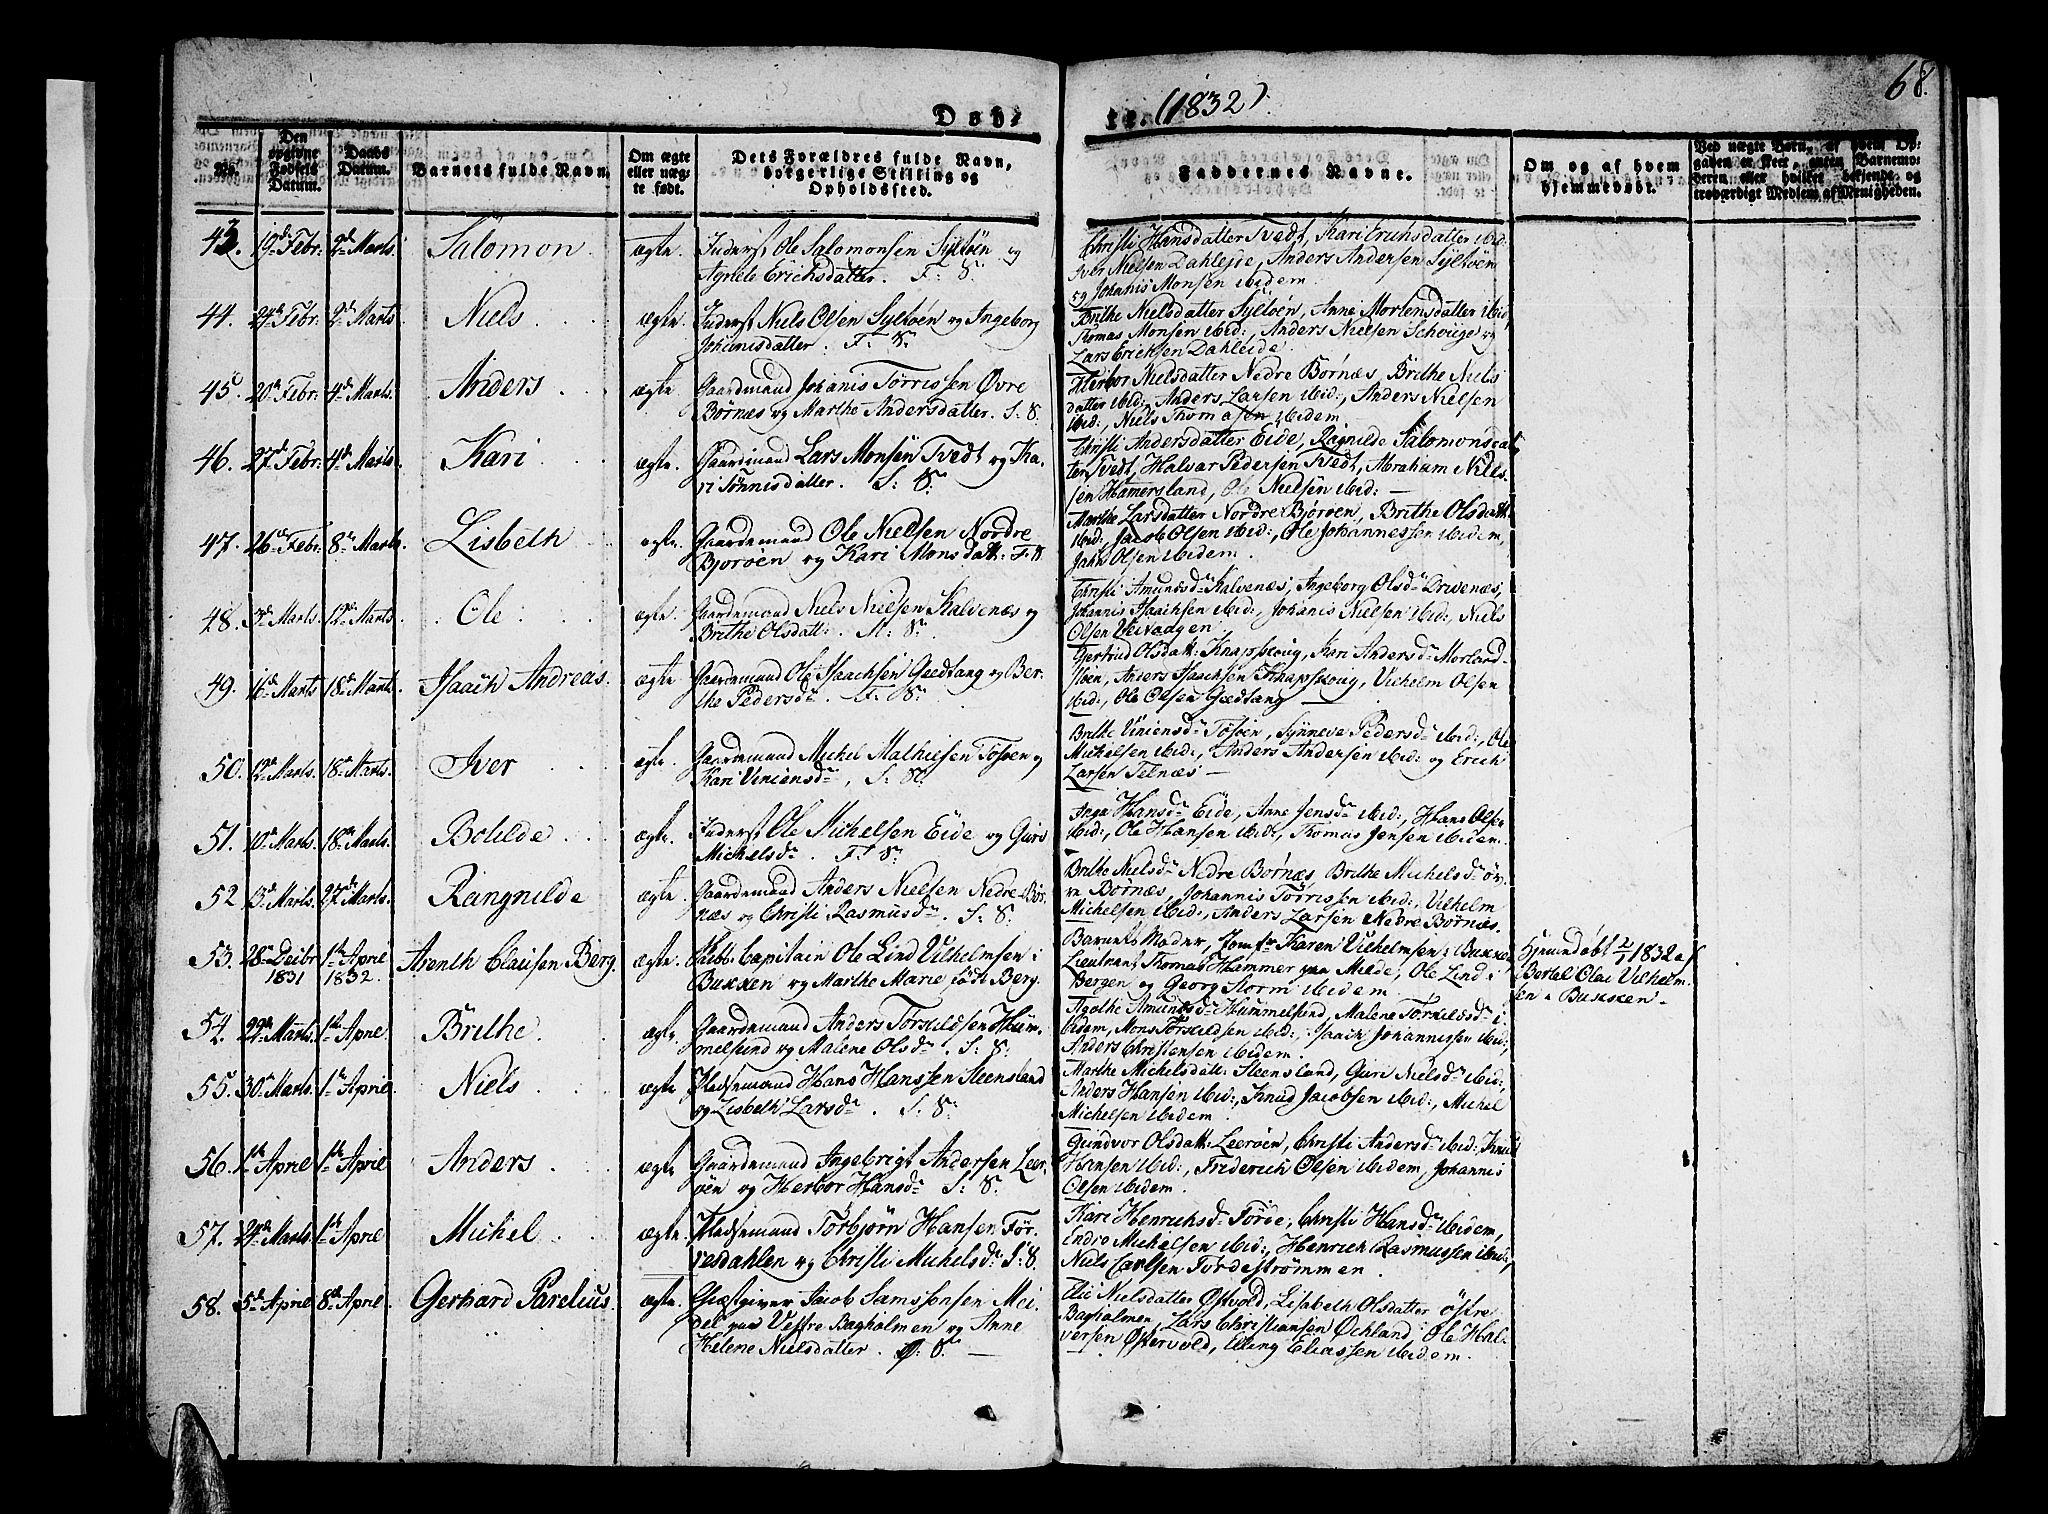 68.
Døb-
te. (1832).
No.
Den opgivne Fødsels Datum.
Daabs Datum.
Barnets fulde Navn.
Om ægte eller uægte født.
Dets Forældres fulde Navn, borgerlige Stilling og Opholdssted.
Faddernes Navne.
Om og af hvem hjemmedøbt.
Ved uægte Børn, af hvem Opgaven er skeet, enten Barnemoderen eller hvilket bekjendt og troværdigt Medlem af Menigheden.
43. 19de Febr. 2de Marts. Salomon ægte. Inderst Ole Salomonsen Syltöen og
Agnele Erichsdatter. F: S:
Christi Hansdatter Tvedt, Kari Erichsdatter ibid:
Iver Nielsen Dahleide, Anders Andersen Syltöen
og Johanis Monsen ibidem.
44. 24de Febr. 2den Marts Niels ægte. Inderst Niels Olsen Syltöen og Ingeborg
Johanisdatter. F: S:
Brithe Nielsdatter Syltöen, Anne Mortensdatter ibid,
Thomas Monsen ibid:, Anders Nielsen Schouge og
Lars Erichsen Dahleide.
45. 20de Febr. 4de Marts. Anders ægte Gaardmand Johanis Torrissen Øvre
Börnes og Marthe Andersdatter. S: S.
Herbor Nielsdatter Nedre Börnæs, Brithe Niels
datter ibid:, Anders Larsen ibid:, Anders Nielsen
ibid:, Niels Thomasen ibidem.
46. 27de Febr. 4de Marts. Kari ægte. Gaardmand Lars Monsen Tvedt og Ka-
ri Johnisdatter. S: S.
Christi Andersdatter Eide, Ragnilde Salomonsdat
ter Tvedt, Halvar Pedersen Tvedt, Abraham Niels-
sen Hamersland, Ole Nielsen ibid: —
47. 26de Febr. 8de Marts Lisbeth ægte. Gaardemand Ole Nielsen Nordre
Bjoröen og Kari Monsdatt: F: S
Marthe Larsdatter Nordre Björöen, Brithe Olsdatt
ibid:, Jacob Olsen ibid:, Ole Johannessen ibidem,
John Olsen ibidem.
48. 3de Marts. 12de Marts. Ole. ægte. Gaardemand Niels Nielsen Kalvenæs og
Brithe Olsdatt:. S:
Christi Amundsdr Kalvenæs, Ingeborg Olsdr Drivenæs,
Johannis Isaachsen ibid:, Johanis Nielsen ibid:, Niels
Olsen Veivaagen.
49. 16de Marts 18de Marts. Isaach Andreas. ægte Gaardemand Ole Isaachsen Gjedtang og Ber-
the Pedersdr. F: S:
Gertrud Olsdatt: Knapskoug, Kari Andersdr Morland-
stöen, Anders Isaachsen Knapskoug, Vilhelm Olsen
ibid:, Ole Olsen Gjedtang —
50. 12de Marts. 18de Marts. Iver ægte. Gaardemand Michel Mathiesen Tösöen og
Kari Viniensdr, S: S.
Brithe Viniensdr Tösöen, Synneve Pedersdr ibid:, Ole
Michelsen ibid:, Anders Andersen ibid: og Erich
Larsen Telnæs —
51. 10de Marts. 18de Marts. Bolilde ægte. Inderst Ole Michelsen Eide og Guri
Michelsdr. F: S:
Inga Hansdr Eide, Anne Jensdr ibid:, Hans Olsen
ibid:, Ole Hansen ibid:, Thomas Jensen ibidem.
52. 13de Marts. 24de Marts. Rangnilde ægte. Gaardemand Anders Nielsen Nedre Bör-
næs og Christi Rasmusdr. S: S:
Brithe Nielsdr Nedre Börnæs, Brithe Michelsdr öv-
re Börnæs, Johannis Törrissen ibid:, Vilhelm
Michelsen ibid:, Anders Larsen Nedre Börnæs.
53. 28de Decbr 1831 1ste April 1832. Arenth Clausen Berg ægte. Capitain Ole Lind Vilhelmsen i
Buxxen og Marthe Marie født Berg.
Barnets Moder, Jomfr Karen Vilhelmsen i Buxxen,
Lieutnant Thomas Hammer paa Milde, Ole Lind i
Bergen og Georg Storm ibidem.
Hjemdöbt 2/1 1832 af
Bertel Olai Vilhelm-
sen i Buxxen —
54. 29de Marts. 1ste April Brithe. ægte Gaardemand Anders Torkildsen Hum-
melsund og Malene Olsdr. S: S:
Agothe Amundsdr Hummelsund, Malene Torkildsdr i-
bidem, Mons Torkildsen ibid:, Isaach Johannissen ibid:,
Anders Christensen ibidem.
55. 30de Marts. 1ste April Niels ægte Pladsemand Hans Hanssen Steensland
og Lisbeth Larsdr. S: S:
Marthe Michelsdatt: Steensland, Guri Nielsdr ibid:,
Anders Hansen ibid:, Knud Jacobsen ibid:, Michel
Michelsen ibidem.
56. 1ste April 1ste April Anders. ægte Gaardemand Ingebrigt Andersen Leer-
öen og Herbor Hansdr. S: S.
Gundvor Olsdatt: Leeröen, Christi Andersdr ibid:, Knud
Hansen ibid:, Friderich Olsen ibidem, Johannis
Olsen ibidem.
57. 24de Marts. 1ste April Michel ægte. Pladsemand Torbjörn Hansen För-
resdahlen og Christi Michelsdr. S: S.
Kari Henrichsdr Förde, Christi Hansdr ibidem,
Endre Michelsen ibid:, Henrich Rasmussen ibid:,
Niels Carlsen Fördeströmmen.
58. 5te April 8de April. Gerhard Parelius. ægte. Giestgiver Jacob Samssonsen Mei-
del paa Vestre Bagholmen og Anne
Helene Nielsdatter. S: —
Elie Nielsdatter Østvold, Lisabeth Olsdatter östre
Bagholmen, Lars Christiansen Öchland, Ole Hal-
versen Østervold, Elling Eliassen ibidem.